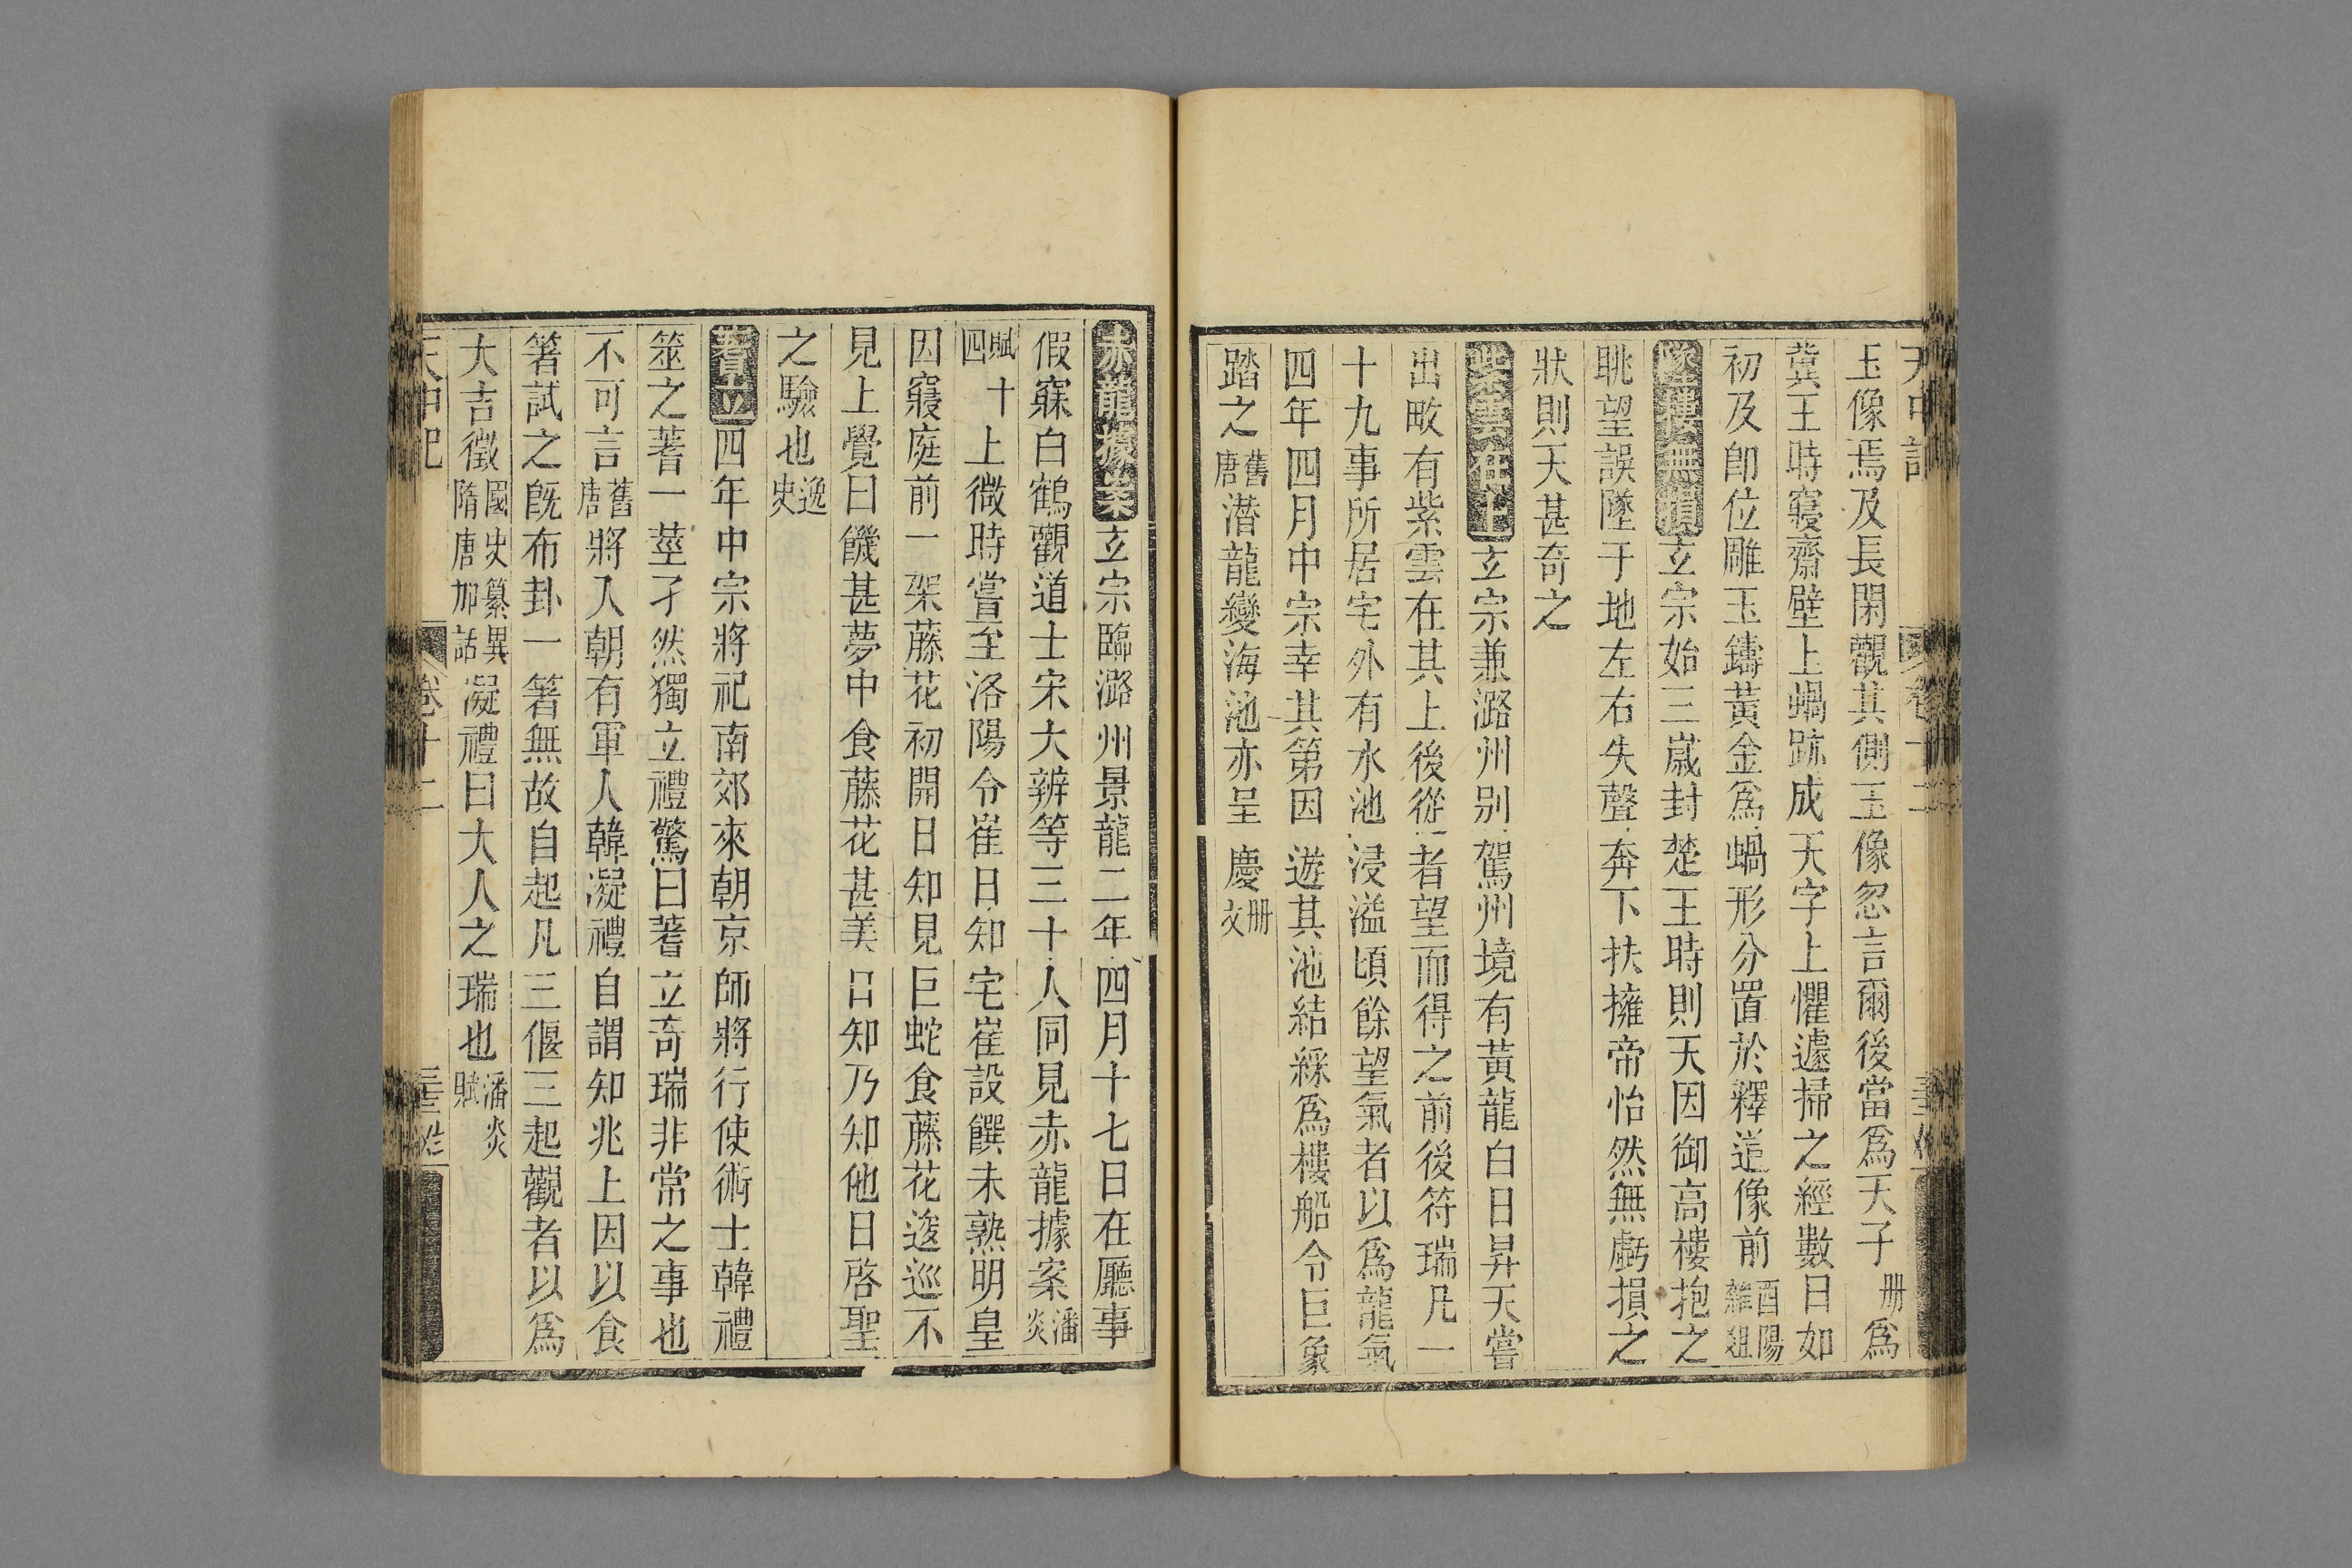 天中記 卷十二
玉像焉及長閑觀其側玉像忽言爾後當爲天子冊爲
冀王時寢齋壁上蝸跡成天字上懼遽掃之經數日如
初及卽位雕玉鑄黃金爲蝸形分置於釋道像前酉陽雜俎
墜樓無損玄宗始三歲封楚王時則天因御高樓抱之
眺望誤墜于地左右失聲奔下扶擁帝怡然無虧損之
狀則天甚奇之
紫雲在上玄宗兼潞州别駕州境有黃龍白日昇天嘗
出畋有紫雲在其上後從者望而得之前後符瑞凡一
十九事所居宅外有水池浸溢頃餘望氣者以爲龍氣
四年四月中宗幸其第因遊其池結綵爲樓船令巨象
踏之舊唐潜龍變海池亦呈慶冊文
赤龍據案玄宗臨潞州景龍二年四月十七日在廳事
假寐白鶴觀道士宋大辨等三十人同見赤龍據案潘炎
賦四十上微時嘗至洛陽令崔日知宅崔設饌未熟明皇
因寢庭前一架藤花初開日知見巨蛇食藤花逡巡不
見上覺曰饑甚夢中食藤花甚美日知乃知他日啓聖
之驗也逸史
蓍立四年中宗將祀南郊來朝京師將行使術士韓禮
筮之蓍一莖孑然獨立禮驚曰蓍立奇瑞非常之事也
不可言舊唐將入朝有軍人韓凝禮自謂知兆上因以食
箸試之旣布卦一箸無故自起凡三偃三起觀者以爲
大吉徵國史纂異隋唐加話凝禮曰大人之瑞也潘炎賦
天中記 卷十二